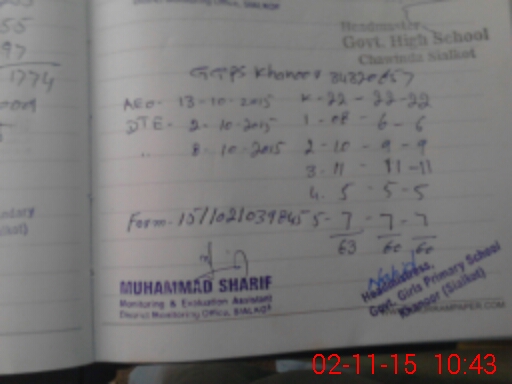 55
97
1774
District Monitoring Office, SIALKOT
Headmaster
Govt. High School
Chawinda Sialkot
GGPS Khanoor 34320657
AEO - 13-10-2015 K-22 - 22-22
DTE - 2-10-2015 1-08 - 6-6
" 8-10-2015 2-10 - 9-9
3-11 - 11-11
4. 5 - 5-5
Form. 15/1021039845 5-7-7-7
63 60 60
MUHAMMAD SHARIF
Monitoring & Evaluation Assistant
District Monitoring Office, SIALKOT
Headmistress,
Govt. Girls Primary School
Khanoor (Sialkot)
02-11-15 10:43